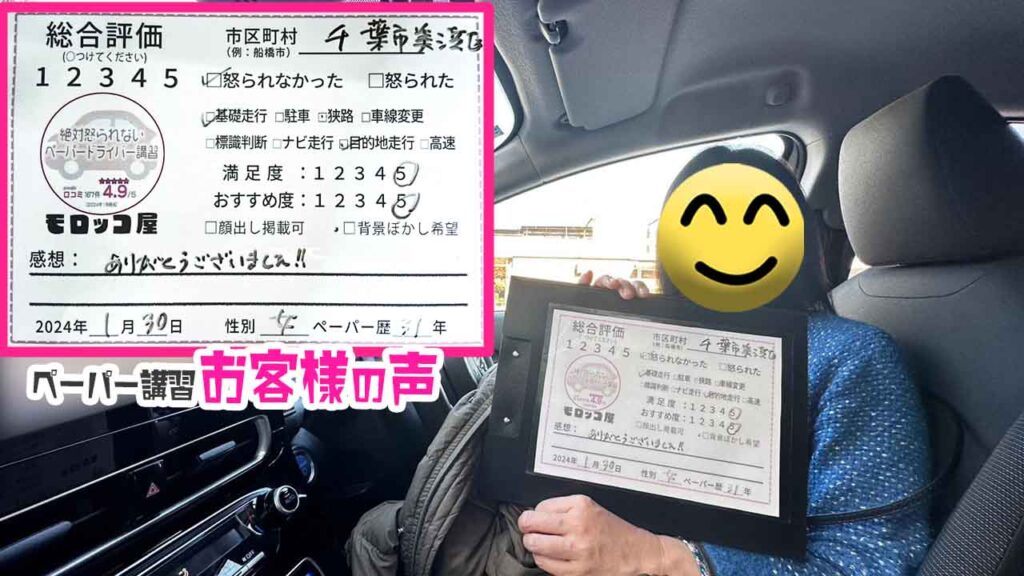 総合評価
(○つけてください)
1 2 3 4 5
市区町村
(例：船橋市)
千葉市美浜区
☑怒られなかった □怒られた
☑基礎走行 □駐車 ⊡狭路 □車線変更
□標識判断 □ナビ走行 ☑目的地走行 □高速
満足度：1 2 3 4 5
おすすめ度：1 2 3 4 5
□顔出し掲載可 □背景ぼかし希望
絶対怒られない
ペーパードライバー講習
★★★★★
口コミ 167件 4.9/5
モロッコ屋
感想： ありがとうございました!!
2024年 1月 30日 性別 女 ペーパー歴 31年
ペーパー講習 お客様の声
総合評価
1 2 3 4 5
市区町村
(例：船橋市)
千葉市美浜区
☑怒られなかった □怒られた
☑基礎走行 □駐車 ⊡狭路 □車線変更
□標識判断 □ナビ走行 ☑目的地走行 □高速
満足度：1 2 3 4 5
おすすめ度：1 2 3 4 5
□顔出し掲載可 □背景ぼかし希望
4.9
モロッコ屋
感想： ありがとうございました!!
2024年 1月 30日 性別 女 ペーパー歴 31年